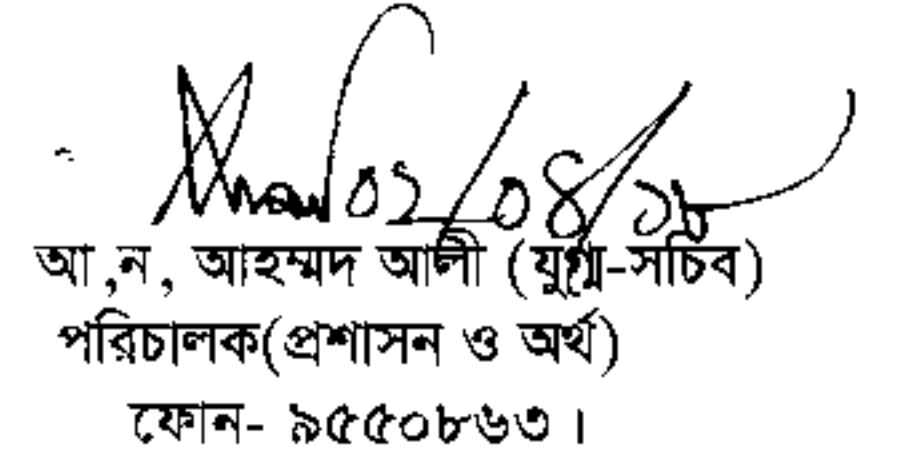 ০২/০৪/১৮
আ,ন, আহম্মদ আলী (যুগ্ম-সচিব)
পরিচালক(প্রশাসন ও অর্থ)
ফোন- ৯৫৫০৮৬৩।